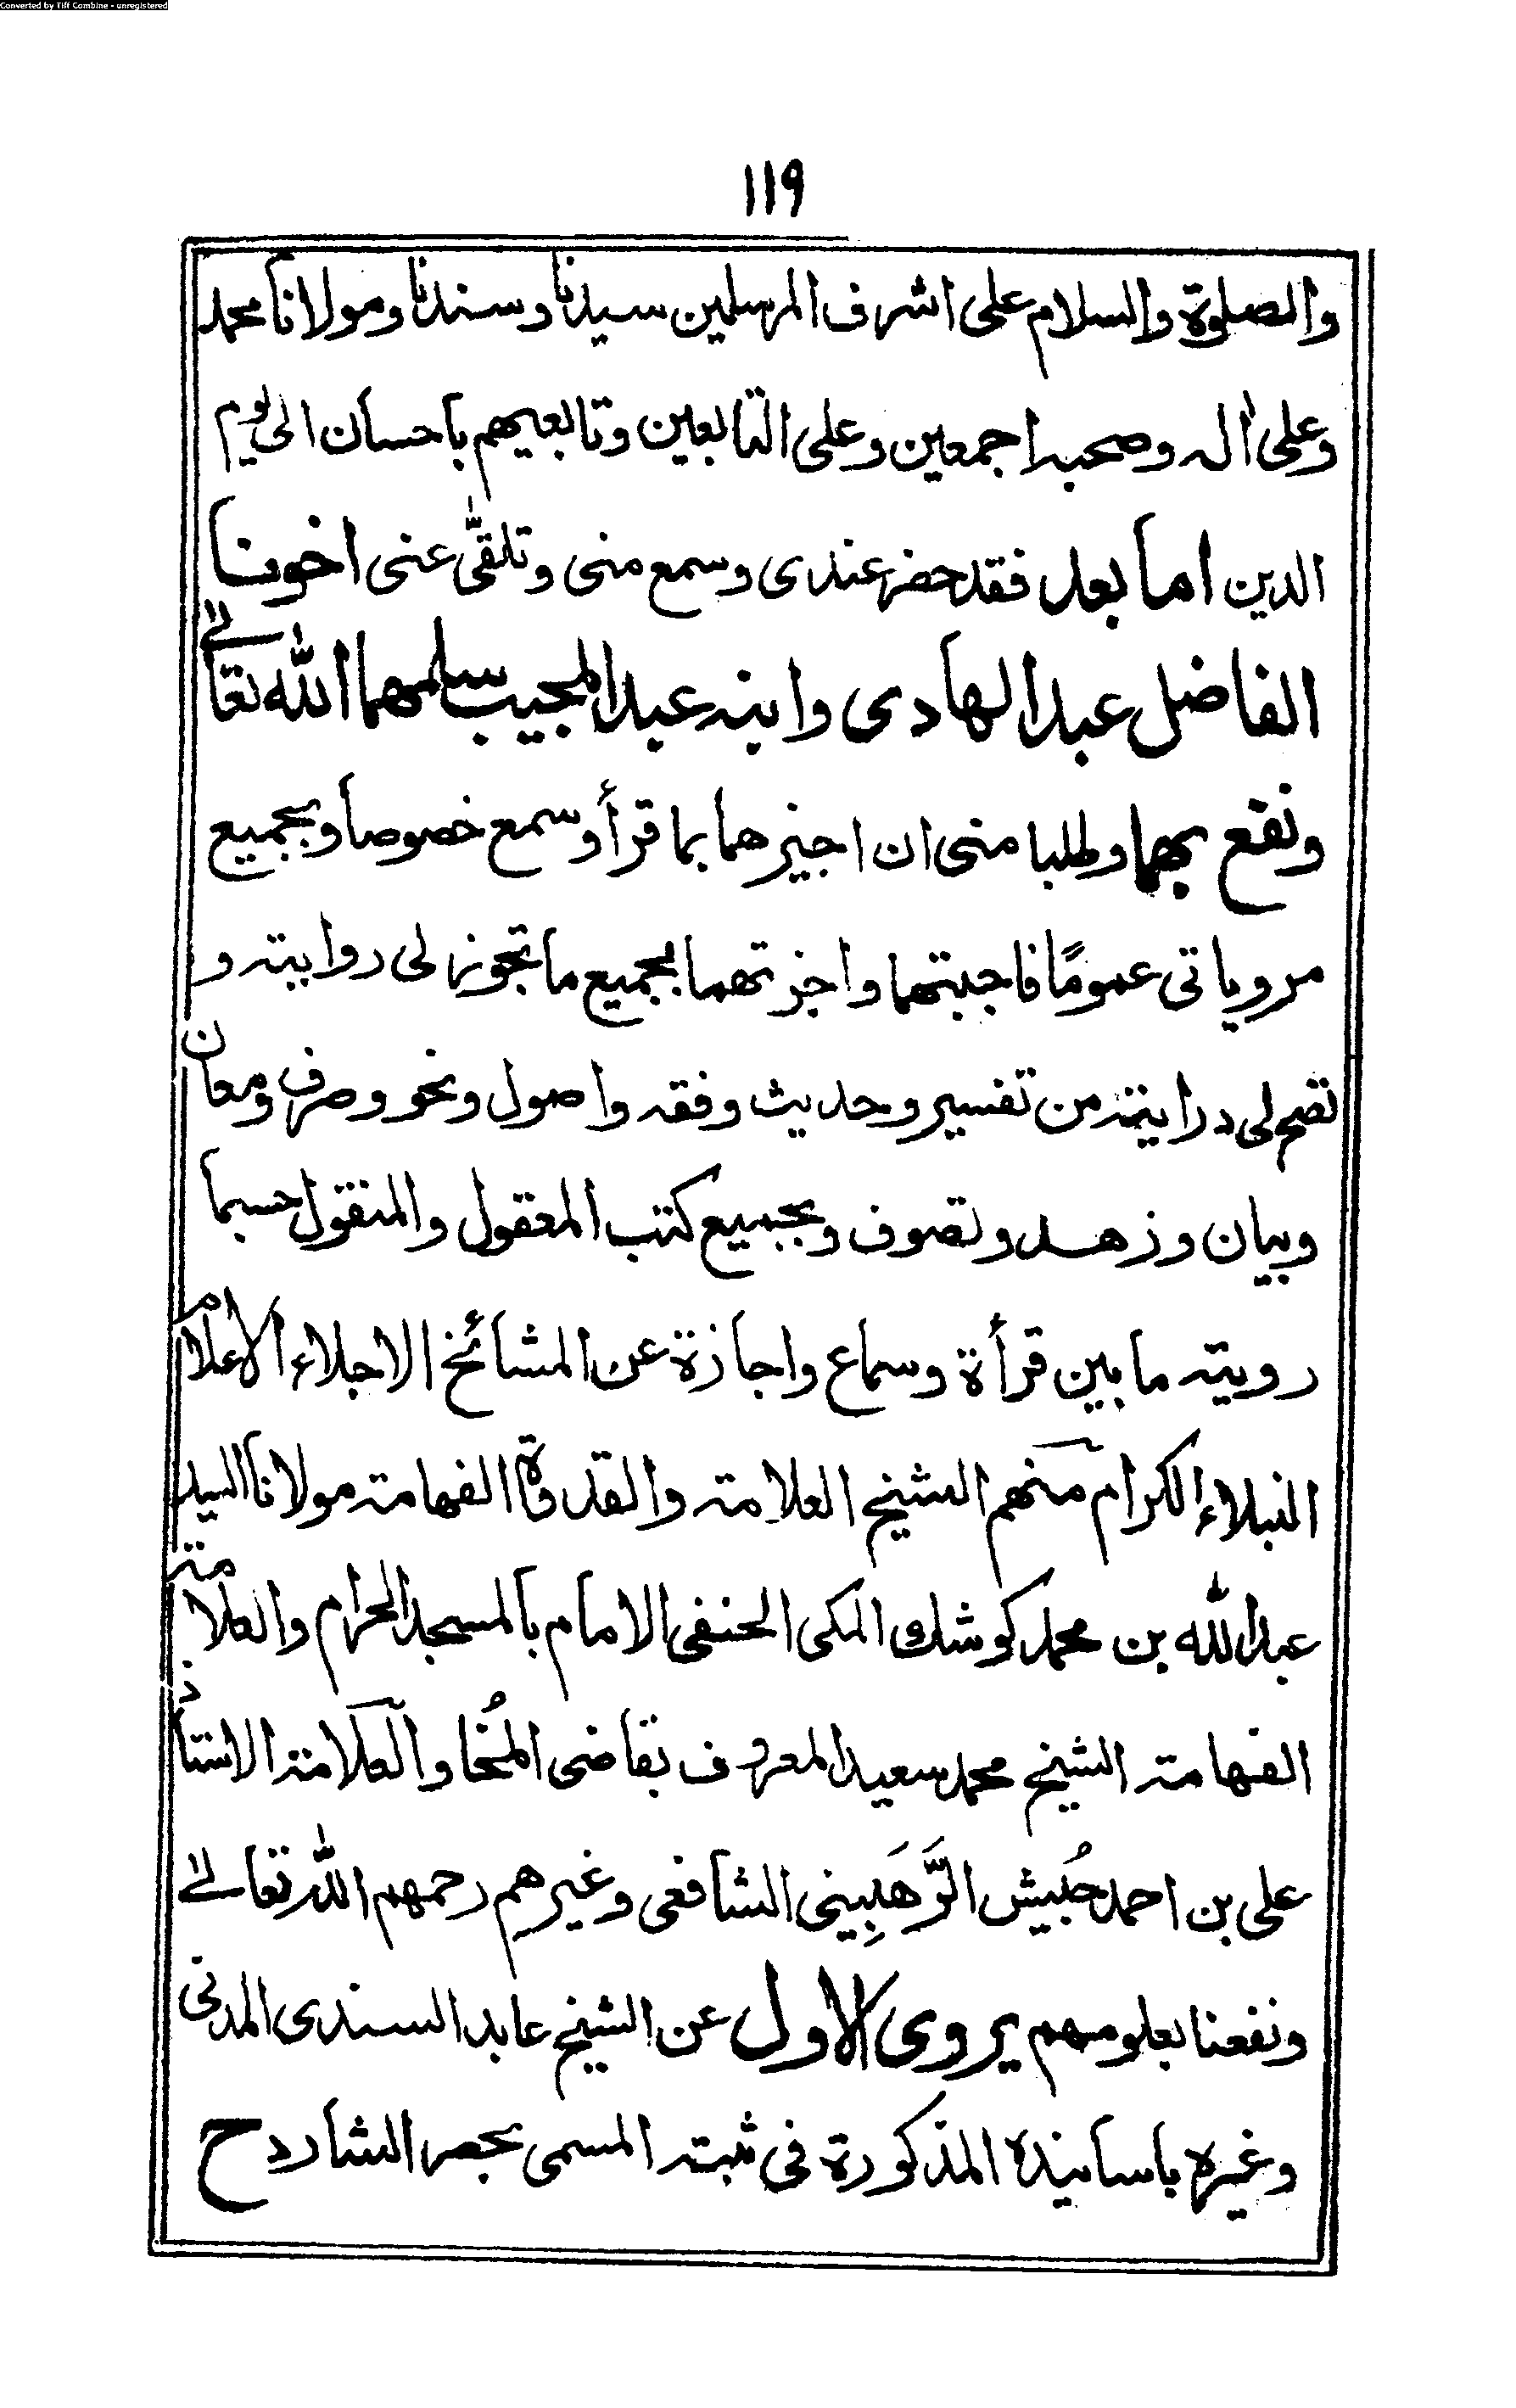 Converted by Tiff Combine - unregistered
١١٩
والصلوة والسلام على اشرف المرسلين سيدنا وسندنا ومولانا محمد
وعلى اٰله وصحبه اجمعين وعلى التابعين وتابعيهم باحسان الى يوم
الدين اما بعد فقد حضر عندى وسمع منى وتلقّى عنى اخونا
الفاضل عبد الهادى وابنه عبد المجيب سلمهما الله تعالے
ونفع بهما وطلبا منى ان اجيزهما بما قرأ وسمع خصوصا وبجميع
مروياتى عمومًا فاجبتهما واجزتهما بجميع ما تجوز لى روايته و
تصح لى درايته من تفسير وحديث وفقه واصول ونحو وصرف ومعان
وبيان وزهد وتصوف وبجميع كتب المعقول والمنقول حسبما
رويته ما بين قرأة وسماع واجازة عن المشائخ الاجلاء الاعلام
النبلاء الكرام منهم الشيخ العلامة والقدوة الفهامة مولانا السيد
عبد الله بن محمد كوشك المكى الحنفى الامام بالمسجد الحرام والعلامة
الفهامة الشيخ محمد سعيد المعروف بقاضى المُخا والعلامة الاستاذ
على بن احمد حُبيش الرَّهَبِينى الشافعى وغيرهم رحمهم الله تعالے
ونفعنا بعلومهم يروى الاول عن الشيخ عابد السندى المدنى
وغيره باسانيده المذكورة فى ثبته المسمى بحصر الشارد ح